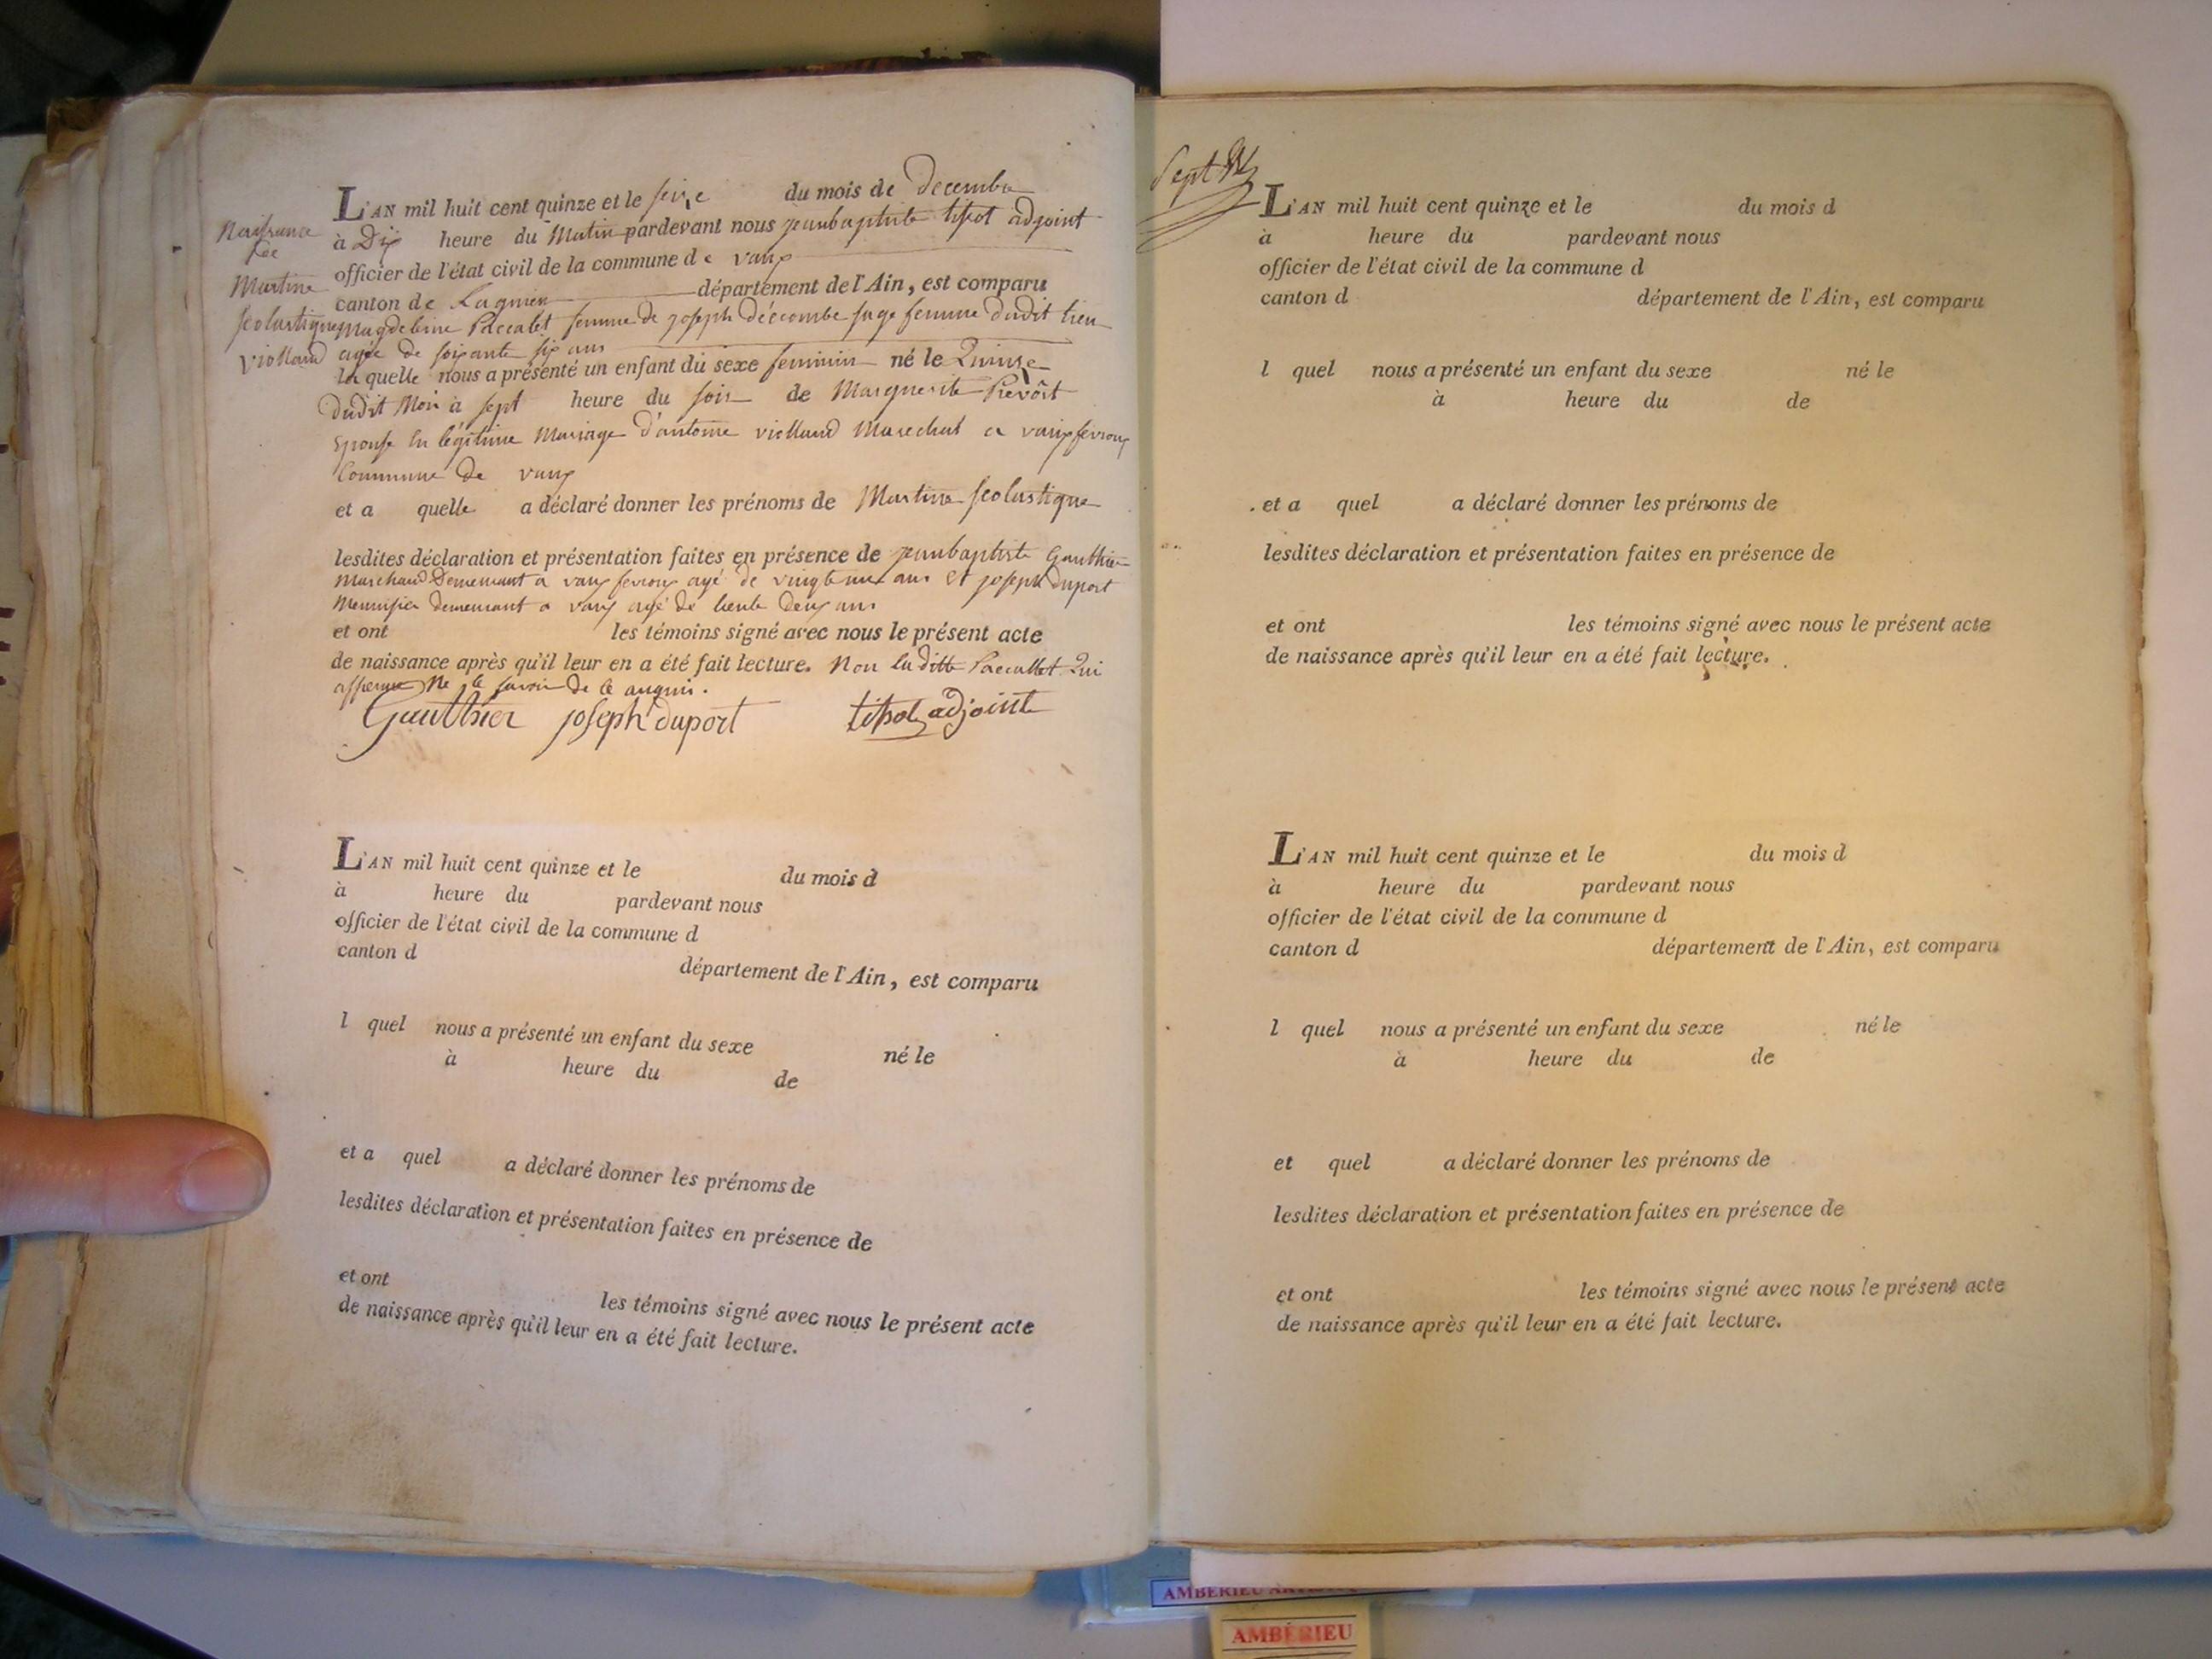 L'AN mil huit cent quinze et le seize du mois de Decembre
à Dix heure du Matin pardevant nous jeanbaptiste tissot adjoint
officier de l'état civil de la commune de vaux
canton de Lagnieu département de l'Ain, est comparu
Magdeleine Paccalet femme de joseph décombe sage femme dudit lieu
agée de soixante six ans
la quelle nous a présenté un enfant du sexe feminin né le Quinze
dudit Mois à sept heure du soir de Marguerite Prevôt
Epouse en légitime Mariage d'antoine violland Marechal a vauxfevroux
Commune de vaux
et a quelle a déclaré donner les prénoms de Martine scolastique
lesdites déclaration et présentation faites en présence de jeanbaptiste Gauthier
Marchand Demeurant a vaux fevroux agé de vingt ans et joseph duport
Menuisier demeurant a vaux agé de trente deux ans
et ont les témoins signé avec nous le présent acte
de naissance après qu'il leur en a été fait lecture. Non la ditte Paccallet Qui
Ne le savoir De ce
Gauthier joseph duport tissot adjoint
Naissance
De
Martine
scolastique
violland
L'AN mil huit cent quinze et le du mois d
à heure du pardevant nous
officier de l'état civil de la commune d
canton d département de l'Ain, est comparu
l quel nous a présenté un enfant du sexe né le
à heure du de
et a quel a déclaré donner les prénoms de
lesdites déclaration et présentation faites en présence de
et ont les témoins signé avec nous le présent acte
de naissance après qu'il leur en a été fait lecture.
Sept
L'AN mil huit cent quinze et le du mois d
à heure du pardevant nous
officier de l'état civil de la commune d
canton d département de l'Ain, est comparu
l quel nous a présenté un enfant du sexe né le
à heure du de
et a quel a déclaré donner les prénoms de
lesdites déclaration et présentation faites en présence de
et ont les témoins signé avec nous le présent acte
de naissance après qu'il leur en a été fait lecture.
L'AN mil huit cent quinze et le du mois d
à heure du pardevant nous
officier de l'état civil de la commune d
canton d département de l'Ain, est comparu
l quel nous a présenté un enfant du sexe né le
à heure du de
et quel a déclaré donner les prénoms de
lesdites déclaration et présentation faites en présence de
et ont les témoins signé avec nous le présent acte
de naissance après qu'il leur en a été fait lecture.
AMBERIEU
AMBÉRIEU